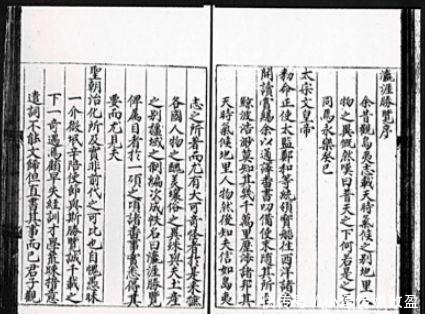 瀛涯勝覽序
余昔觀島夷志載天時氣候之別地里
物之異慨然嘆曰普天之下何若是之
同焉永樂癸巳
太宗文皇帝
勑命正使太監鄭和等統領寶船往西洋諸
開讀賞賜余以通譯番書亦備使末隨其所
鯨波浩渺莫知其幾千萬里歷涉諸邦其
天時氣候地里人物然後知夫信如島夷
志之所著而尤有大可奇怪者焉於是采摭
各國人物之醜美壤俗之異殊與夫土產
之別疆域之制編次成帙名曰瀛涯勝覽
俾屬目者於一頃之諸番事實悉得其
要而尤見夫
聖朝治化所及實非前代之可比也自愧愚昧
一介微氓幸陪使節與斯勝覽誠千載之
下一奇遇焉顧失經訓才學荒踈措意
遣詞不能文飾但直書其事而已君子觀